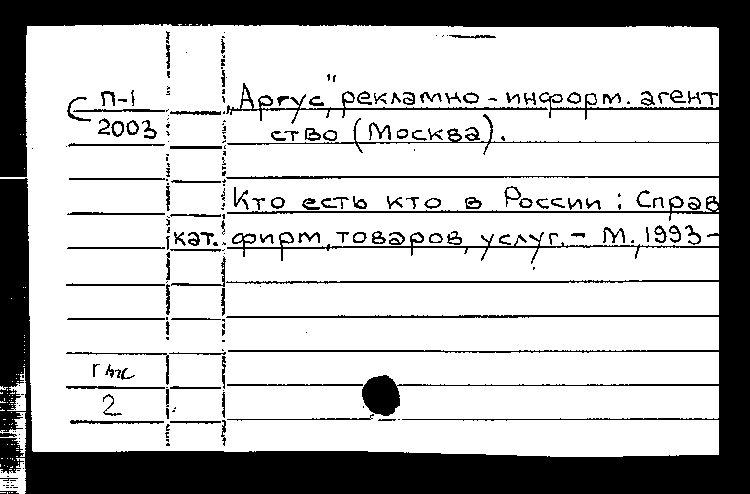 С П-1 „Аргус,“ рекламно-информ. агент
2003 ство (Москва).
Кто есть кто в России : Справ
кат. фирм, товаров, услуг. - М., 1993-
2